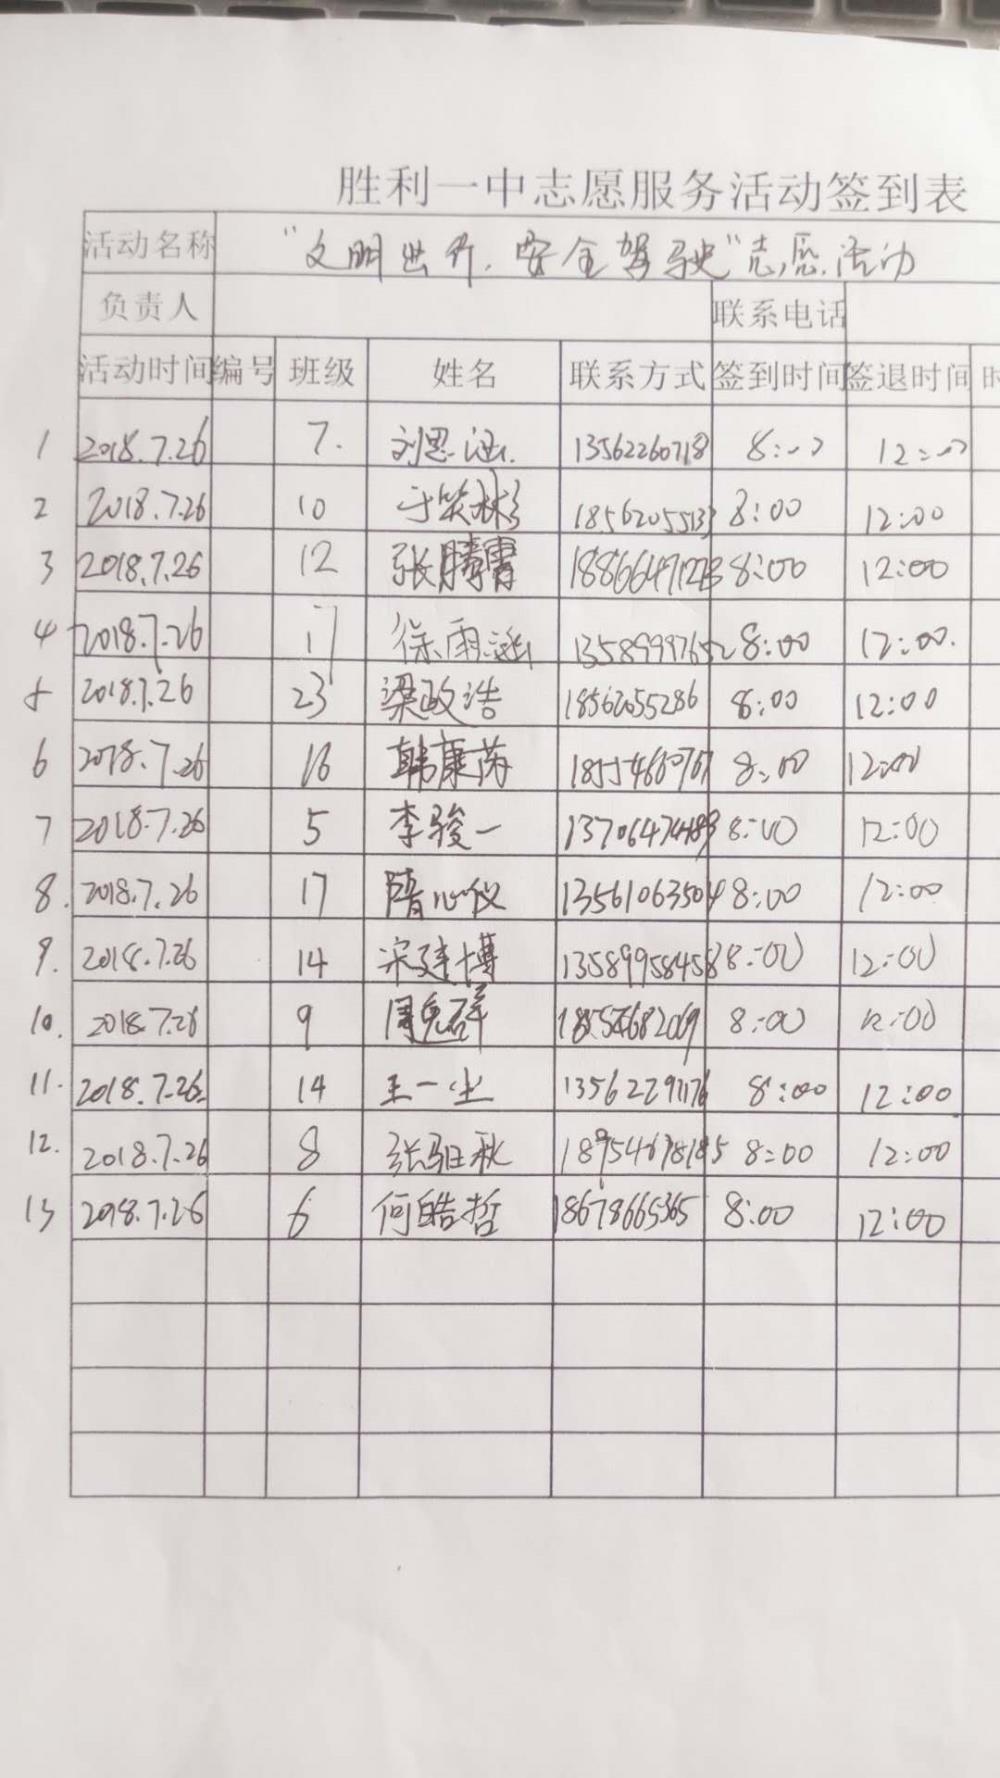 胜利一中志愿服务活动签到表
活动名称 "文明出行.安全驾驶"志愿活动
负责人 联系电话
活动时间 编号 班级 姓名 联系方式 签到时间 签退时间 时
1 2018.7.26 7. 刘思涵. 13562260718 8:00 12:00
2 2018.7.26 10 于笑 8:00 12:00
3 2018.7.26 12 张 8:00 12:00
4 2018.7.26 17 徐雨涵 8:00 12:00.
5 2018.7.26 23 梁政浩 18562055286 8:00 12:00
6 2018.7.26 16 韩康芮 8:00 12:00
7 2018.7.26 5 李骏一 8:00 12:00
8. 2018.7.26 17 隋心仪 13561063504 8:00 12:00
9. 2018.7.26 14 宋建博 13589958458 8:00 12:00
10. 2018.7.26 9 周 8:00 12:00
11. 2018.7.26. 14 王一尘 13562297176 8:00 12:00
12. 2018.7.26 8 张驲秋 8:00 12:00
13 2018.7.26 6 何皓哲 18678665365 8:00 12:00